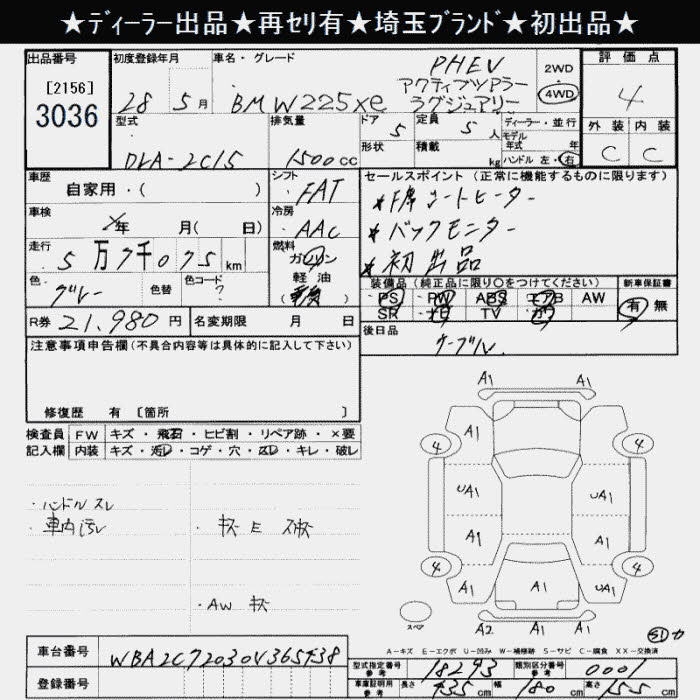 ★ディーラー出品★再セリ有★埼玉ブランド★初出品★
出品番号 初度登録年月 車名・グレード PHEV 2WD 評価点
[2156] アクティブツアラー
3036 28年 5月 BMW225xe ラグジュアリー 4WD 4
型式 排気量 ドア 5 定員 5人 ディーラー・並行 外装 内装
モデル年式 年
DLA-2C15 1500cc 形状 積載 kg ハンドル 左・右 C C
車歴 シフト セールスポイント(正常に機能するものに限ります)
自家用・( ) FAT ★シートヒーター
車検 冷房 ★バックモニター
年 月( 日) AAC ★初出品
走行 燃料
5万7千075km ガソリン
色 色替 色コード 軽油 装備品(純正品に限り○をつけてください) 新車保証書
グレー ? PS PW ABS エアB AW 有・無
R券 21,980円 名変期限 月 日 SR ナビ TV カワ
注意事項申告欄(不具合内容等は具体的に記入して下さい) 後日品
ケーブル
修復歴 有 [箇所 ]
検査員 FW キズ・飛石・ヒビ割・リペア跡・×要
記入欄 内装 キズ・汚レ・コゲ・穴・スレ・キレ・破レ
・ハンドルスレ
・車内汚レ
・AWキズ
A1 A1
A1 A1
4 4
UA1 UA1
A1 A1
4 4
A2 A1 UA1
A1 A1
スペア
A-キズ E-エクボ U-凹み W-補修跡 S-サビ C-腐食 XX-交換済
車台番号 型式指定番号 参考 18293 類別区分番号 参考 0001
登録番号 車庫証明用 参考 長さ 435cm 幅 180cm 高さ 155cm